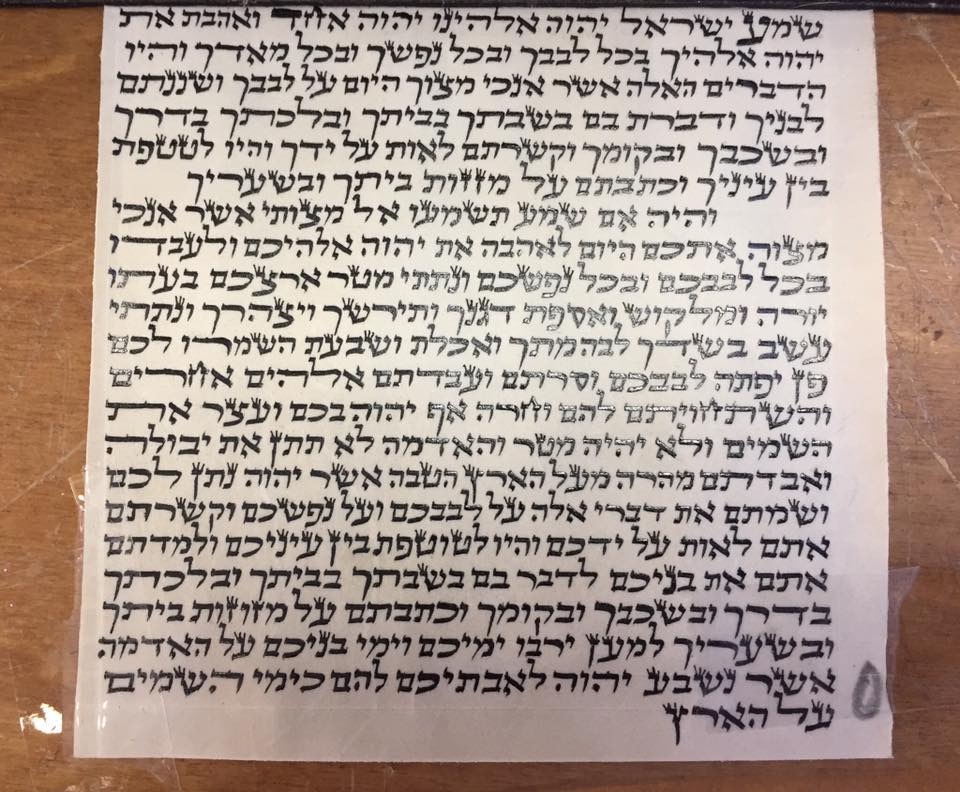 שמע ישראל יהוה אלהינו יהוה אחד ואהבת את
יהוה אלהיך בכל לבבך ובכל נפשך ובכל מאדך והיו
הדברים האלה אשר אנכי מצוך היום על לבבך ושננתם
לבניך ודברת בם בשבתך בביתך ובלכתך בדרך
ובשכבך ובקומך וקשרתם לאות על ידך והיו לטטפת
בין עיניך וכתבתם על מזזות ביתך ובשעריך
והיה אם שמע תשמעו אל מצותי אשר אנכי
מצוה אתכם היום לאהבה את יהוה אלהיכם ולעבדו
בכל לבבכם ובכל נפשכם ונתתי מטר ארצכם בעתו
יורה ומלקוש ואספת דגנך ותירשך ויצהרך ונתתי
עשב בשדך לבהמתך ואכלת ושבעת השמרו לכם
פן יפתה לבבכם וסרתם ועבדתם אלהים אחרים
והשתחויתם להם וחרה אף יהוה בכם ועצר את
השמים ולא יהיה מטר והאדמה לא תתן את יבולה
ואבדתם מהרה מעל הארץ הטבה אשר יהוה נתן לכם
ושמתם את דברי אלה על לבבכם ועל נפשכם וקשרתם
אתם לאות על ידכם והיו לטוטפת בין עיניכם ולמדתם
אתם את בניכם לדבר בם בשבתך בביתך ובלכתך
בדרך ובשכבך ובקומך וכתבתם על מזוזות ביתך
ובשעריך למען ירבו ימיכם וימי בניכם על האדמה
אשר נשבע יהוה לאבתיכם להם כימי השמים
על הארץ